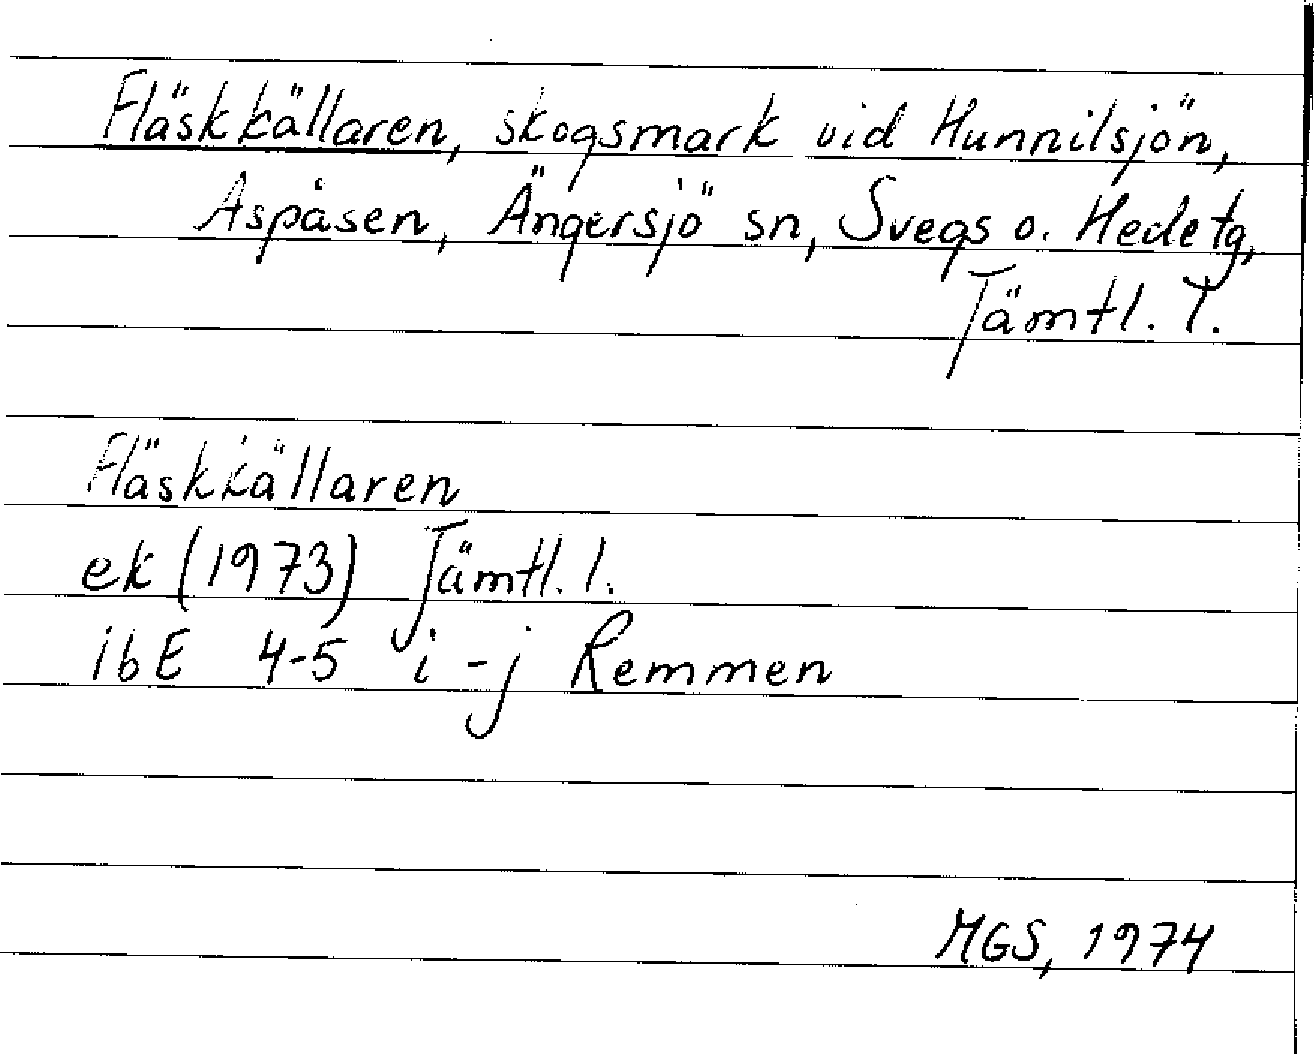 Fläskkällaren, skogsmark vid Hunnilsjön,
Aspåsen, Ängersjö sn, Svegs o. Hede tg,
Jämtl. l.
Fläskkällaren
ek (1973) Jämtl. l.
ibE 4-5 i-j Remmen
MGS, 1974